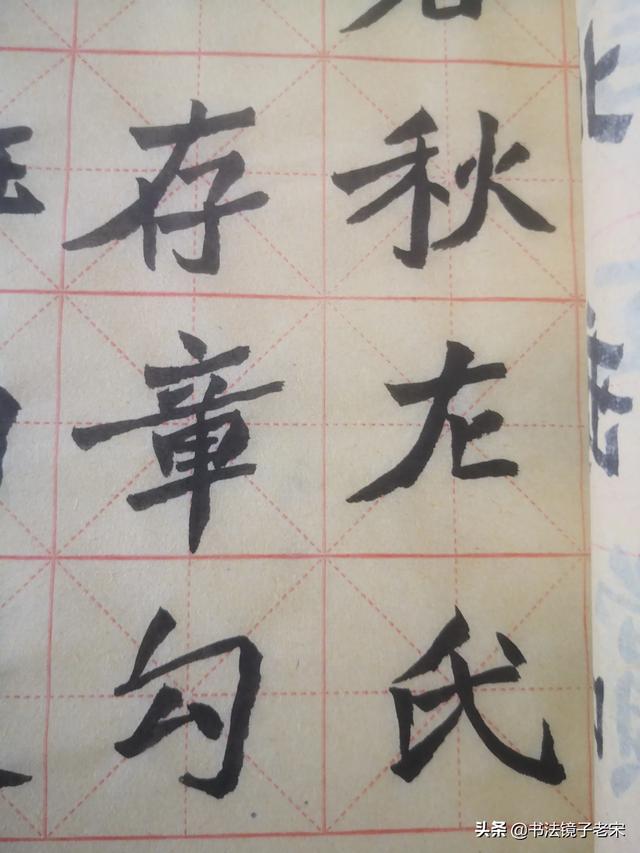 秋左氏
存章勾
头条 @书法镜子老宋